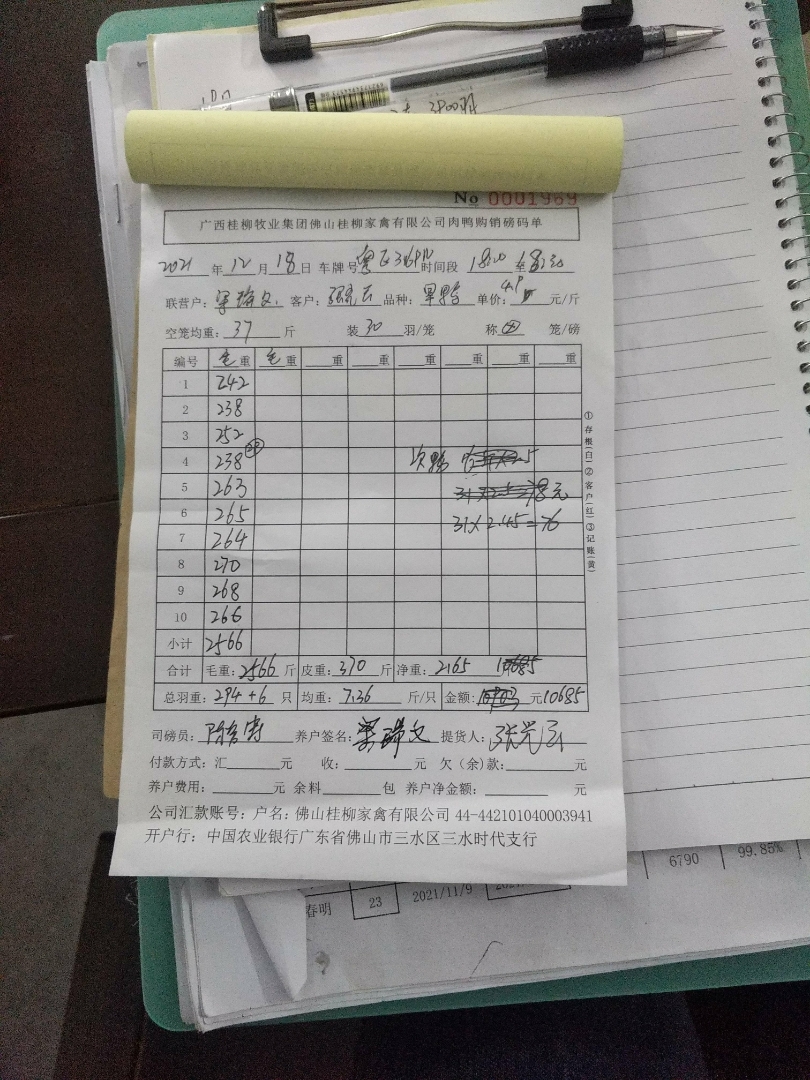 2400
No 0001969
广西桂柳牧业集团佛山桂柳家禽有限公司肉鸭购销磅码单
2021 年 12 月 18 日 车牌号 时间段 至
联营户： 客户： 品种： 单价： 元/斤
空笼均重： 37 斤 装 30 羽/笼 称 笼/磅
编号 毛重 毛重 重 重 重 重 重 重
1 242
2 238
3 252
4 238
5 263
6 265
7 264
8 270
9 268
10 266
小计 2566
次鸭
31×2.5=78元
31×2.45=76
①存根(白)②客户(红)③记账(黄)
合计 毛重：2566 斤 皮重：370 斤 净重：2165 10685
总羽重：294+6 只 均重：7.36 斤/只 金额： 元10685
司磅员： 养户签名：梁瑞文 提货人：
付款方式：汇 元 收： 元 欠（余）款： 元
养户费用： 元 余料 包 养户净金额： 元
公司汇款账号：户名：佛山桂柳家禽有限公司 44-442101040003941
开户行：中国农业银行广东省佛山市三水区三水时代支行
春明 23 2021/11/9 6790 99.85%